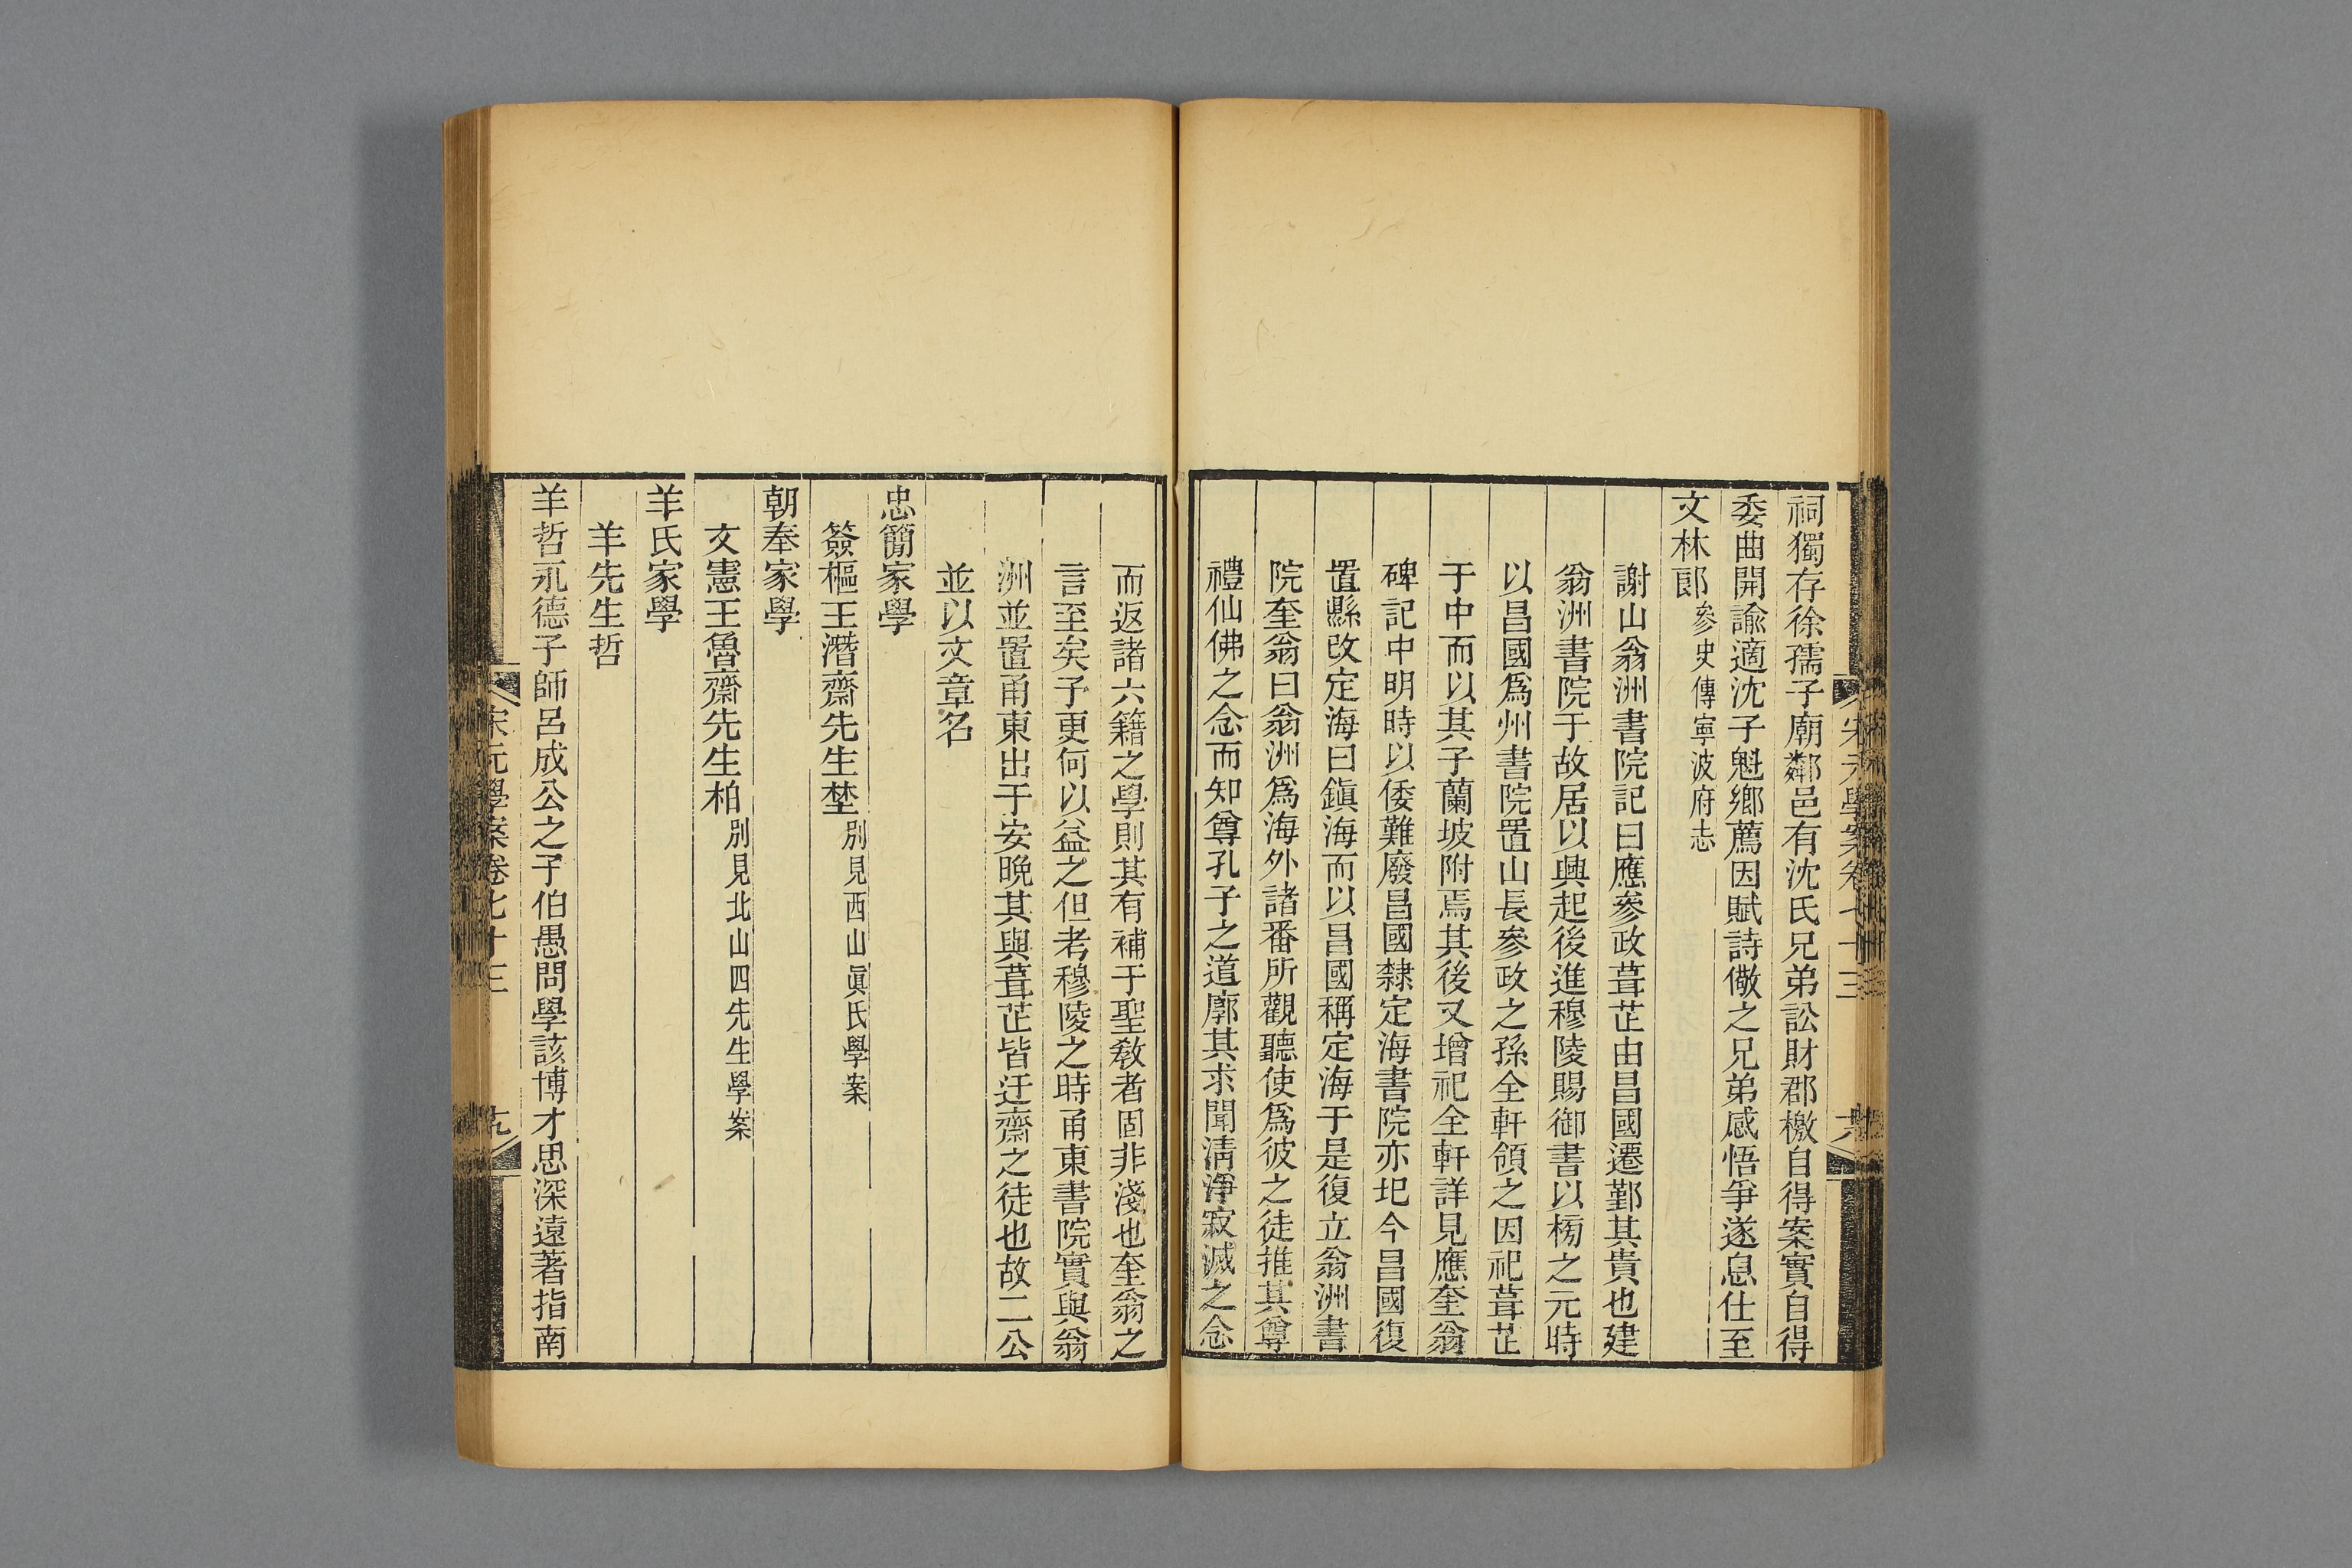 祠獨存徐孺子廟鄰邑有沈氏兄弟訟財郡檄自得案實自得
委曲開諭適沈子魁鄉薦因賦詩儆之兄弟感悟爭遂息仕至
文林郎參史傳寧波府志
謝山翁洲書院記曰應參政葺芷由昌國遷鄞其貴也建
翁洲書院于故居以興起後進穆陵賜御書以榜之元時
以昌國爲州書院置山長參政之孫全軒領之因祀葺芷
于中而以其子蘭坡附焉其後又增祀全軒詳見應奎翁
碑記中明時以倭難廢昌國隸定海書院亦圯今昌國復
置縣改定海曰鎭海而以昌國稱定海于是復立翁洲書
院奎翁曰翁洲爲海外諸番所觀聽使爲彼之徒推其尊
禮仙佛之念而知尊孔子之道廓其求聞淸淨寂滅之念
宋元學案卷七十三
六
而返諸六籍之學則其有補于聖敎者固非淺也奎翁之
言至矣予更何以益之但考穆陵之時甬東書院實與翁
洲並置甬東出于安晚其與葺芷皆迂齋之徒也故二公
並以文章名
忠簡家學
簽樞王潛齋先生埜別見西山眞氏學案
朝奉家學
文憲王魯齋先生柏別見北山四先生學案
羊氏家學
羊先生哲
羊哲永德子師呂成公之子伯愚問學該博才思深遠著指南
宋元學案卷七十三